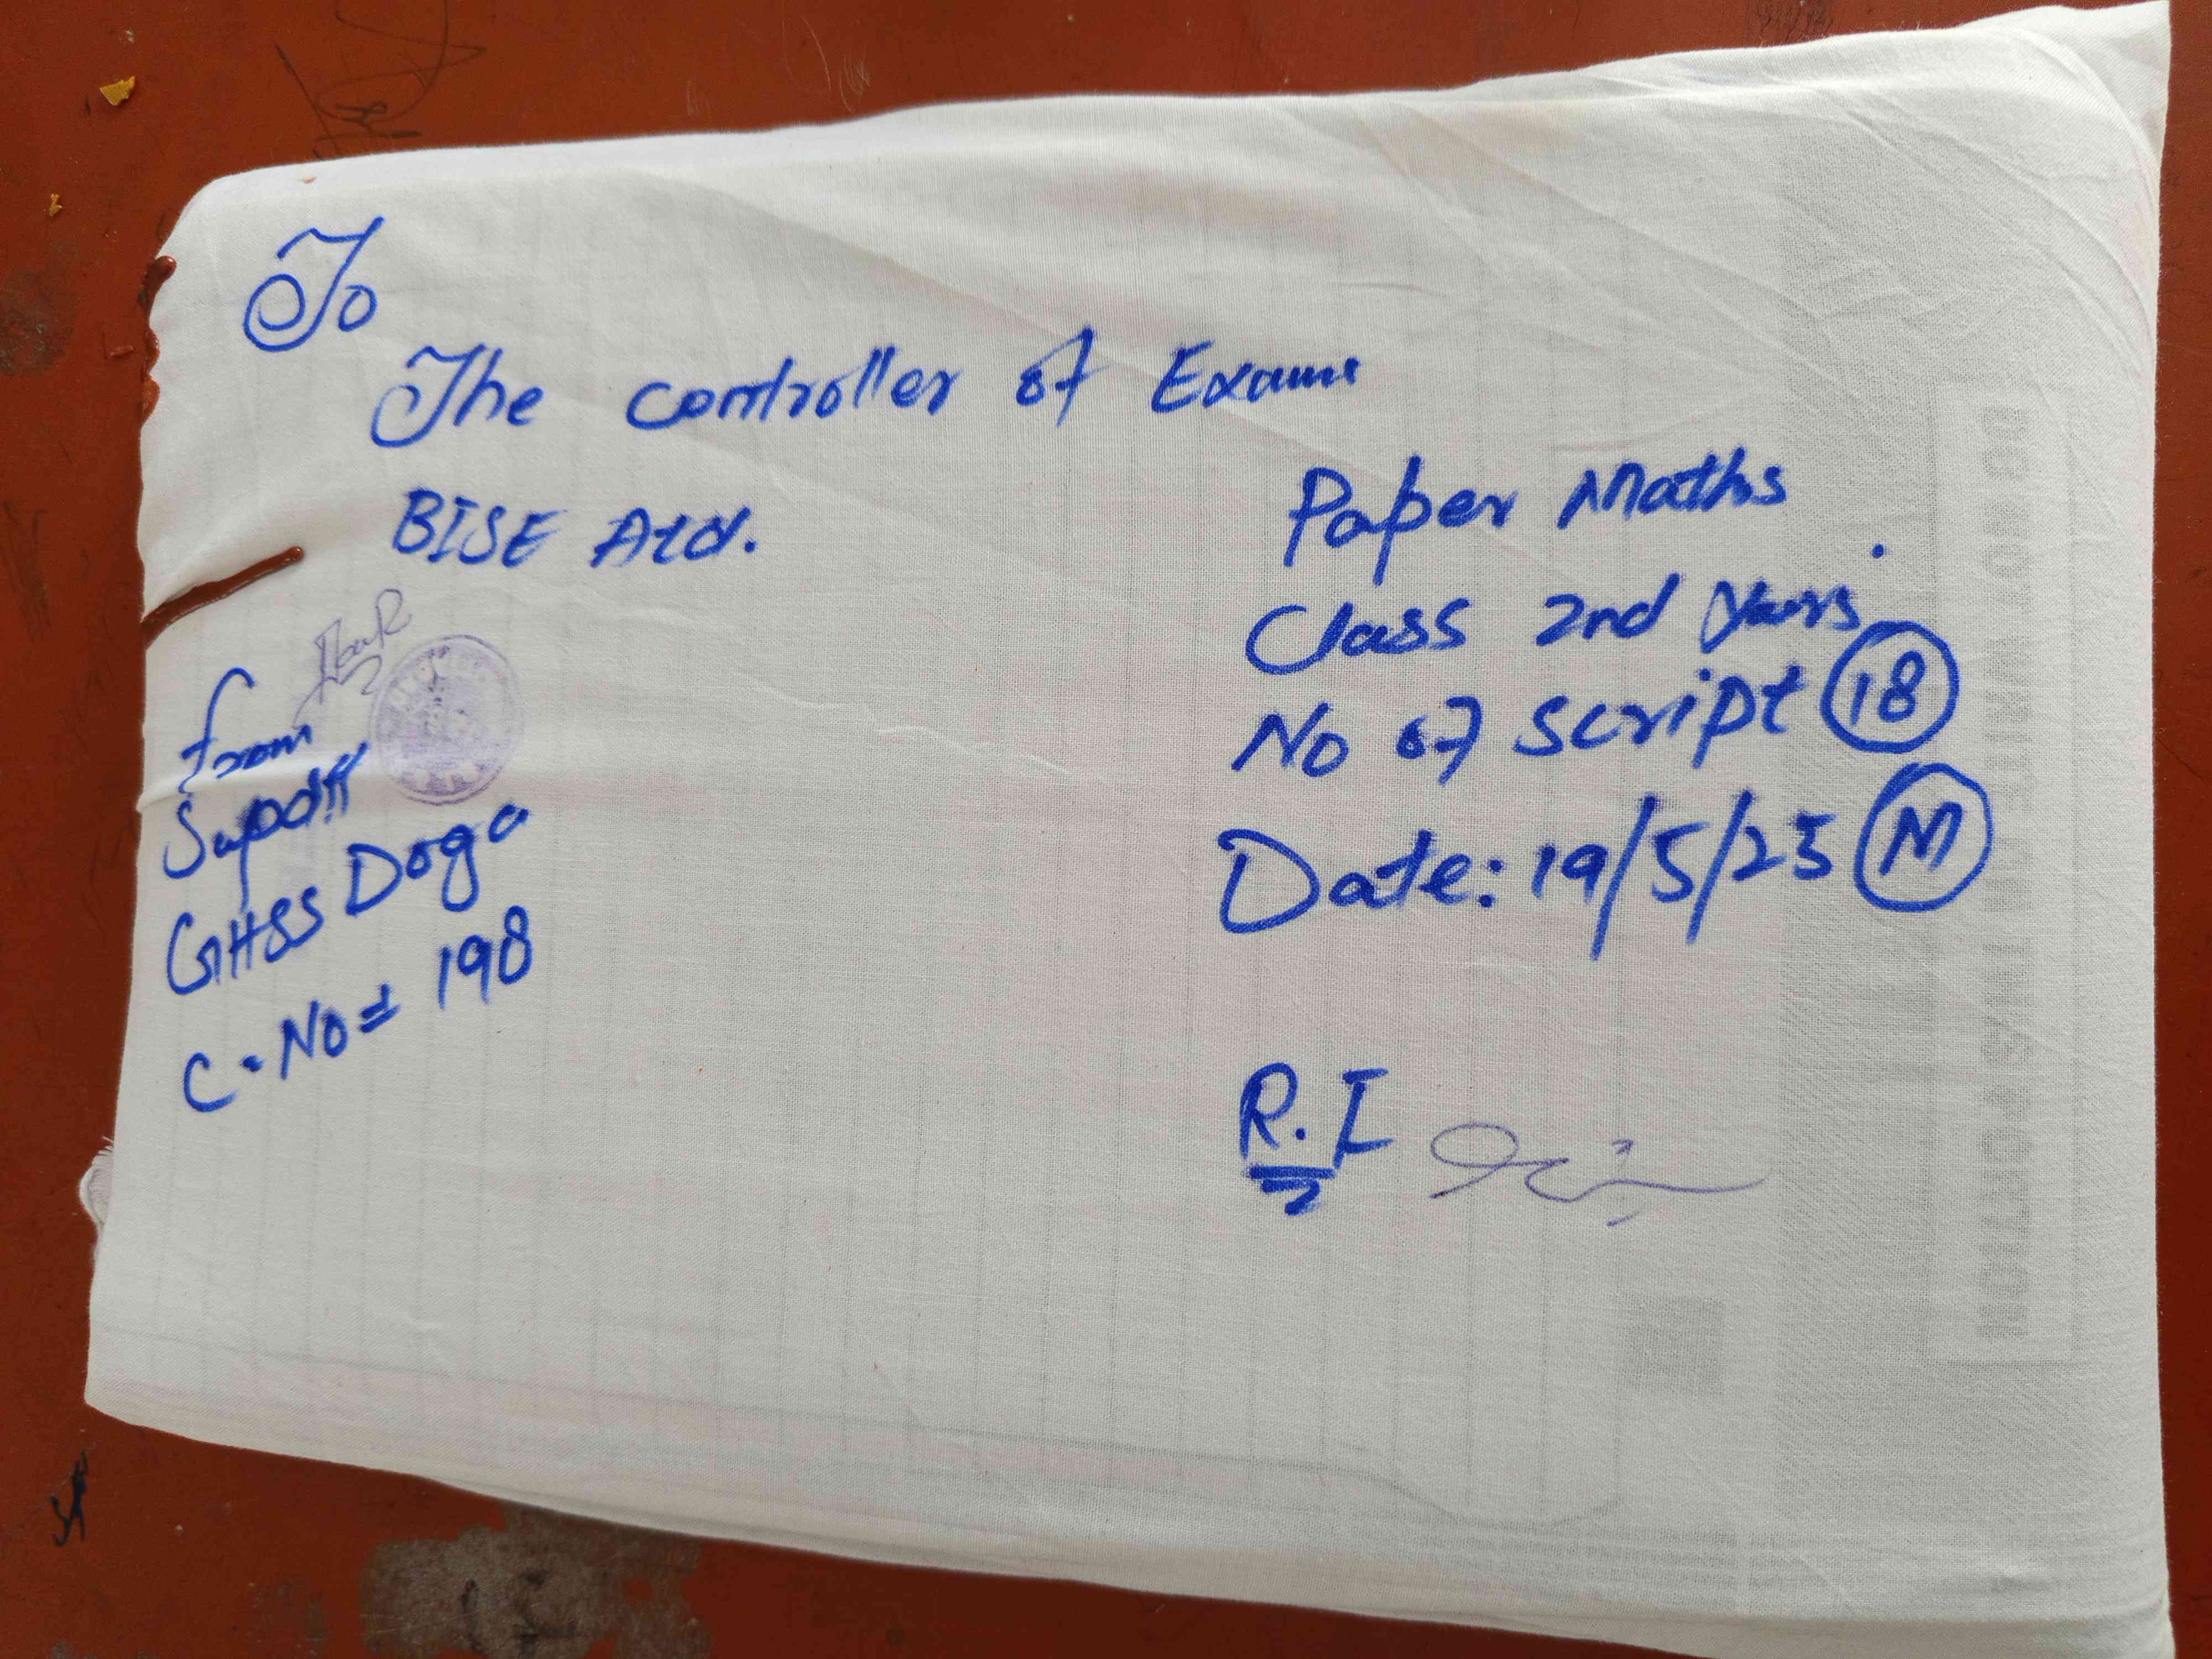 To
The controller of Exams
BISE Atd.
Paper Maths
Class 2nd years
No of script 18
Date: 19/5/25 M
From
Supdtt
GHSS Doga
C. No = 198
R.I